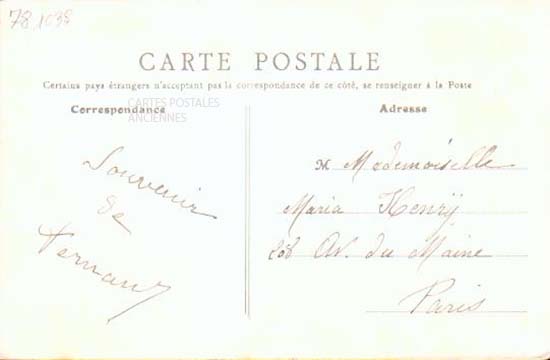 78 1038
CARTE POSTALE
Certains pays étrangers n'acceptent pas la correspondance de ce côté, se renseigner à la Poste
Correspondance
CARTES POSTALES
ANCIENNES
Souvenir
de
Adresse
M. Mademoiselle
Maria Henry
208 Av. du Maine
Paris